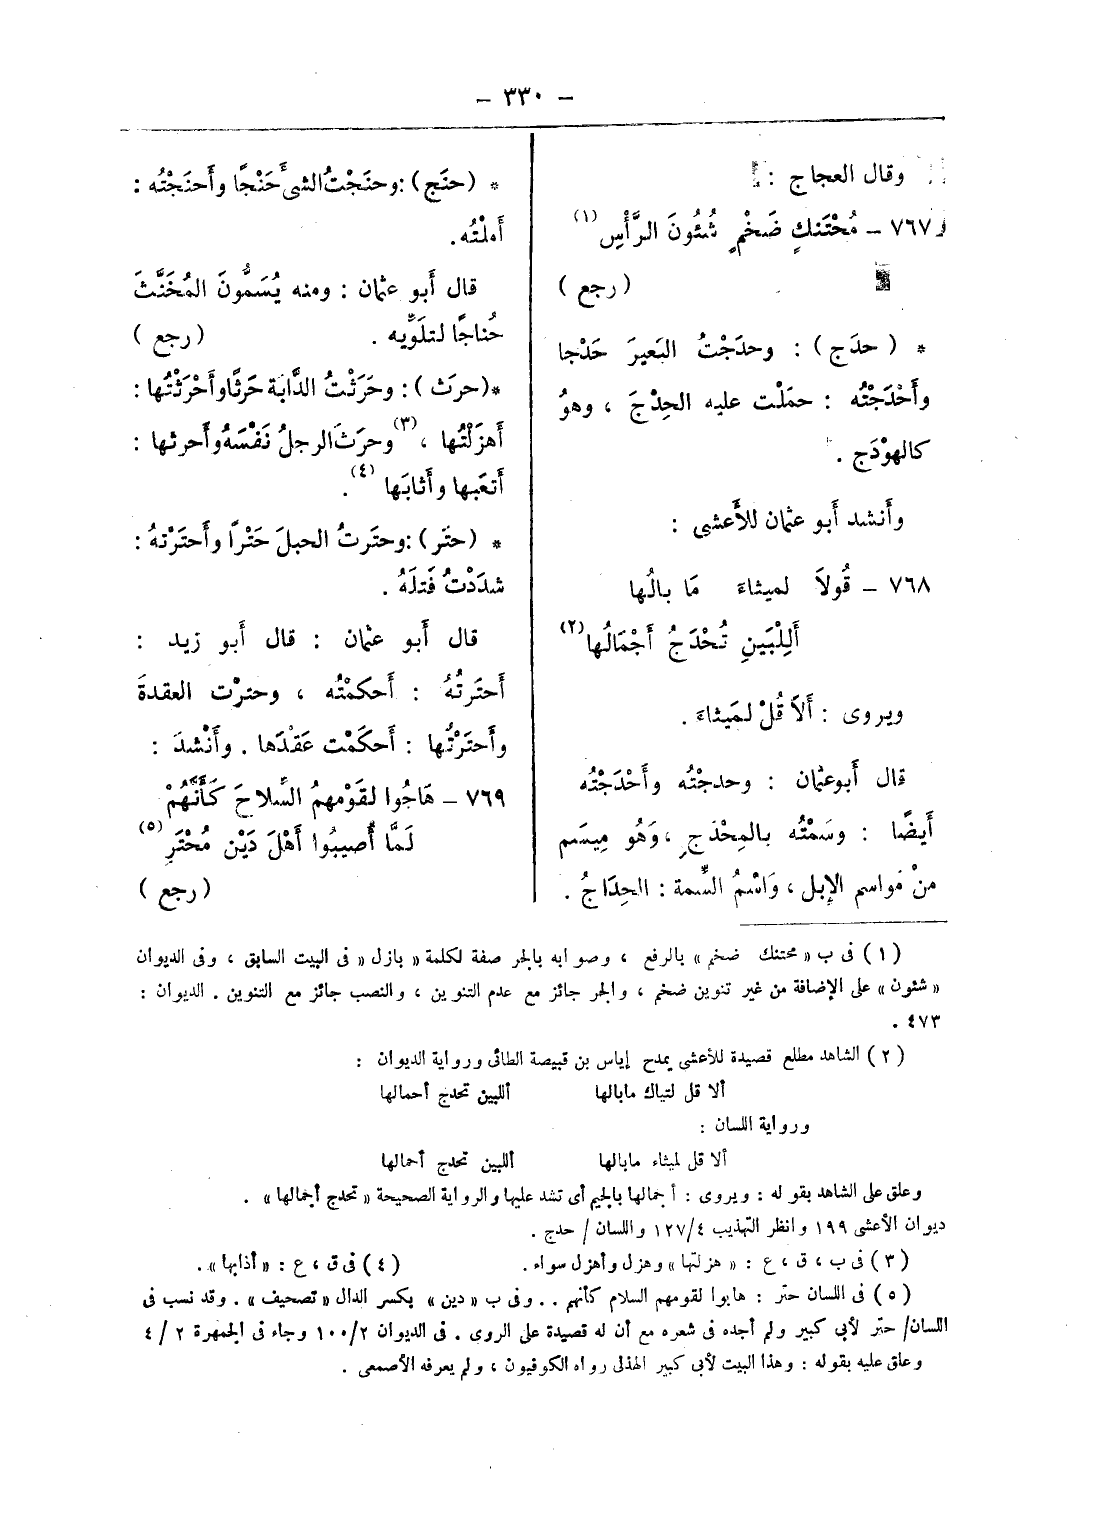 – ٣٣٠ –
وقال العجاج :
٧٦٧ – مُحْتَنكٍ ضَخْمٍ شُئُونَ الرَّأْسِ (١)
( رجع )
* ( حدَج ) : وحدَجْتُ البَعيرَ حَدْجا
وأَحْدَجْتُه : حمَلْت عليه الحِدْجَ ، وهوُ
كالهوْدَج .
وأَنشد أَبو عثمان للأَعشى :
٧٦٨ – قُولاَ لميثاءَ مَا بالُها
أَلِلْبَينِ تُحْدَجُ أَجْمَالُها (٢)
ويروى : أَلاَ قُلْ لمَيثاءَ .
قال أَبوعثمان : وحدجْتُه وأَحْدَجْتُه
أَيضًا : وسَمْتُه بالمِحْدَجِ ، وَهُو مِيسَم
منْ مَواسم الإبل ، وَاسْمُ السِّمة : الحِدَاجُ .
* ( حنَج ) : وحنَجْتُ الشىءَ حَنْجًا وأَحنَجْتُه :
أَملْتُه .
قال أَبو عثمان : ومنه يُسَمُّونَ المُخَنَّثَ
حُناجًا لتلَوِّيه . ( رجع )
* ( حرَث ) : وحَرَثْتُ الدَّابَة حَرثًا وأَحْرَثْتُها :
أَهزَلْتُها ، (٣) وحرَثَ الرجلُ نَفْسَهُ وأَحرثها :
أَتعَبها وأَثابَها (٤) .
* ( حتَر ) : وحتَرتُ الحبلَ حَتْرًا وأَحتَرْتهُ :
شدَدْتُ فَتلَهُ .
قال أَبو عثمان : قال أَبو زيد :
أَحتَرتُهُ : أَحكمْتُه ، وحترْت العقدةَ
وأَحترْتُها : أَحكَمْت عَقْدَها . وأَنْشدَ :
٧٦٩ – هَاجُوا لقَوْمهمُ السَّلاحَ كَأَنَّهُمْ
لَمَّا أُصيبُوا أَهْلَ دَيْن مُحْتَرِ (٥)
( رجع )
( ١ ) فى ب « محتنك ضخم » بالرفع ، وصوابه بالجر صفة لكلمة « بازل » فى البيت السابق ، وفى الديوان
« شئون » على الإضافة من غير تنوين ضخم ، والجر جائز مع عدم التنوين ، والنصب جائز مع التنوين . الديوان :
٤٧٣ .
( ٢ ) الشاهد مطلع قصيدة للأعشى يمدح إياس بن قبيصة الطائى ورواية الديوان :
ألا قل لتياك مابالها أللبين تحدج أحمالها
ورواية اللسان :
ألا قل لميثاء مابالها أللبين تحدج أحمالها
وعلق على الشاهد بقوله : ويروى : أجمالها بالجيم أى تشد عليها والرواية الصحيحة « تحدج أجمالها » .
ديوان الأعشى ١٩٩ وانظر التهذيب ١٢٧/٤ واللسان / حدج .
( ٣ ) فى ب ، ق ، ع : « هزلتها » وهزل وأهزل سواء . ( ٤ ) فى ق ، ع : « أذابها » .
( ٥ ) فى اللسان حتر : هابوا لقومهم السلام كأنهم . . وفى ب « دين » بكسر الدال « تصحيف » . وقد نسب فى
اللسان/ حتر لأبى كبير ولم أجده فى شعره مع أن له قصيدة على الروى . فى الديوان ١٠٠/٢ وجاء فى الجمهرة ٢ / ٤
وعلق عليه بقوله : وهذا البيت لأبى كبير الهذلى رواه الكوفيون ، ولم يعرفه الأصمعى .